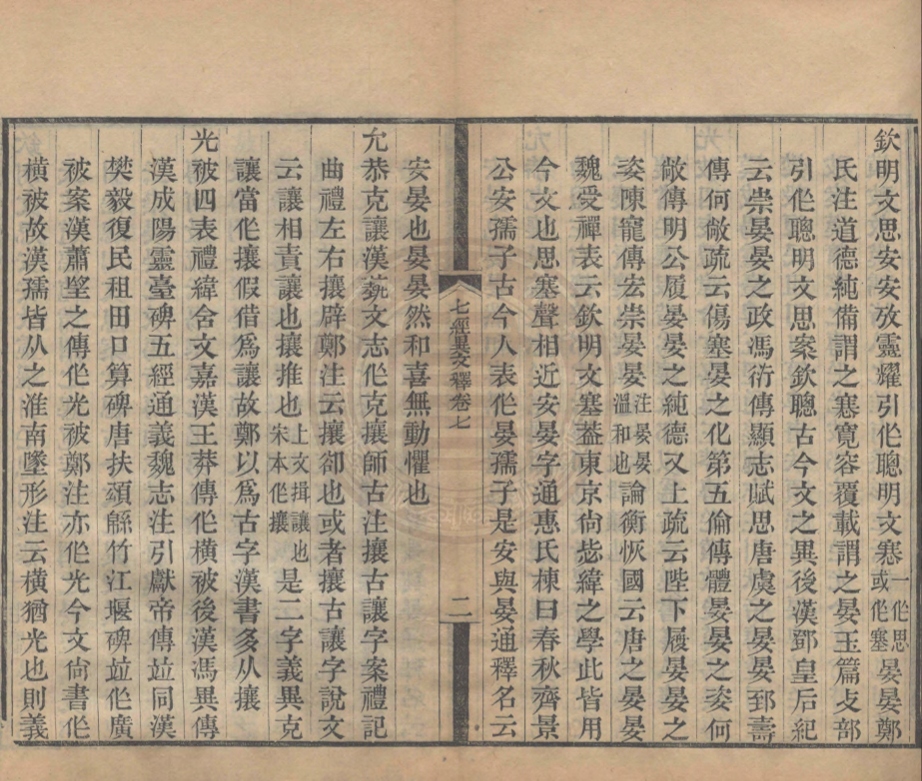 欽明文思安安攷靈耀引作聰明文塞一作思或作塞晏晏鄭
氏注道德純備謂之塞寬容覆載謂之晏玉篇攴部
引作聰明文思案欽聰古今文之異後漢鄧皇后紀
云崇晏晏之政馮衍傳顯志賦思唐虞之晏晏郅壽
傳何敞疏云傷塞晏之化第五倫傳體晏晏之姿何
敞傳明公履晏晏之純德又上疏云陛下履晏晏之
姿陳寵傳宏崇晏晏注晏晏溫和也論衡恢國云唐之晏晏
魏受禪表云欽明文塞葢東京尙毖緯之學此皆用
今文也思塞聲相近安晏字通惠氏棟曰春秋齊景
公安孺子古今人表作晏孺子是安與晏通釋名云
七經異文釋卷七
二
安晏也晏晏然和喜無動懼也
允恭克讓漢蓺文志作克攘師古注攘古讓字案禮記
曲禮左右攘辟鄭注云攘卻也或者攘古讓字說文
云讓相責讓也攘推也上文揖讓也宋本作攘是二字義異克
讓當作攘假借爲讓故鄭以爲古字漢書多从攘
光被四表禮緯含文嘉漢王莽傳作橫被後漢馮異傳
漢成陽靈臺碑五經通義魏志注引獻帝傳竝同漢
樊毅復民租田口算碑唐扶頌緜竹江堰碑竝作廣
被案漢蕭望之傳作光被鄭注亦作光今文尙書作
橫被故漢孺皆从之淮南墬形注云橫猶光也則義